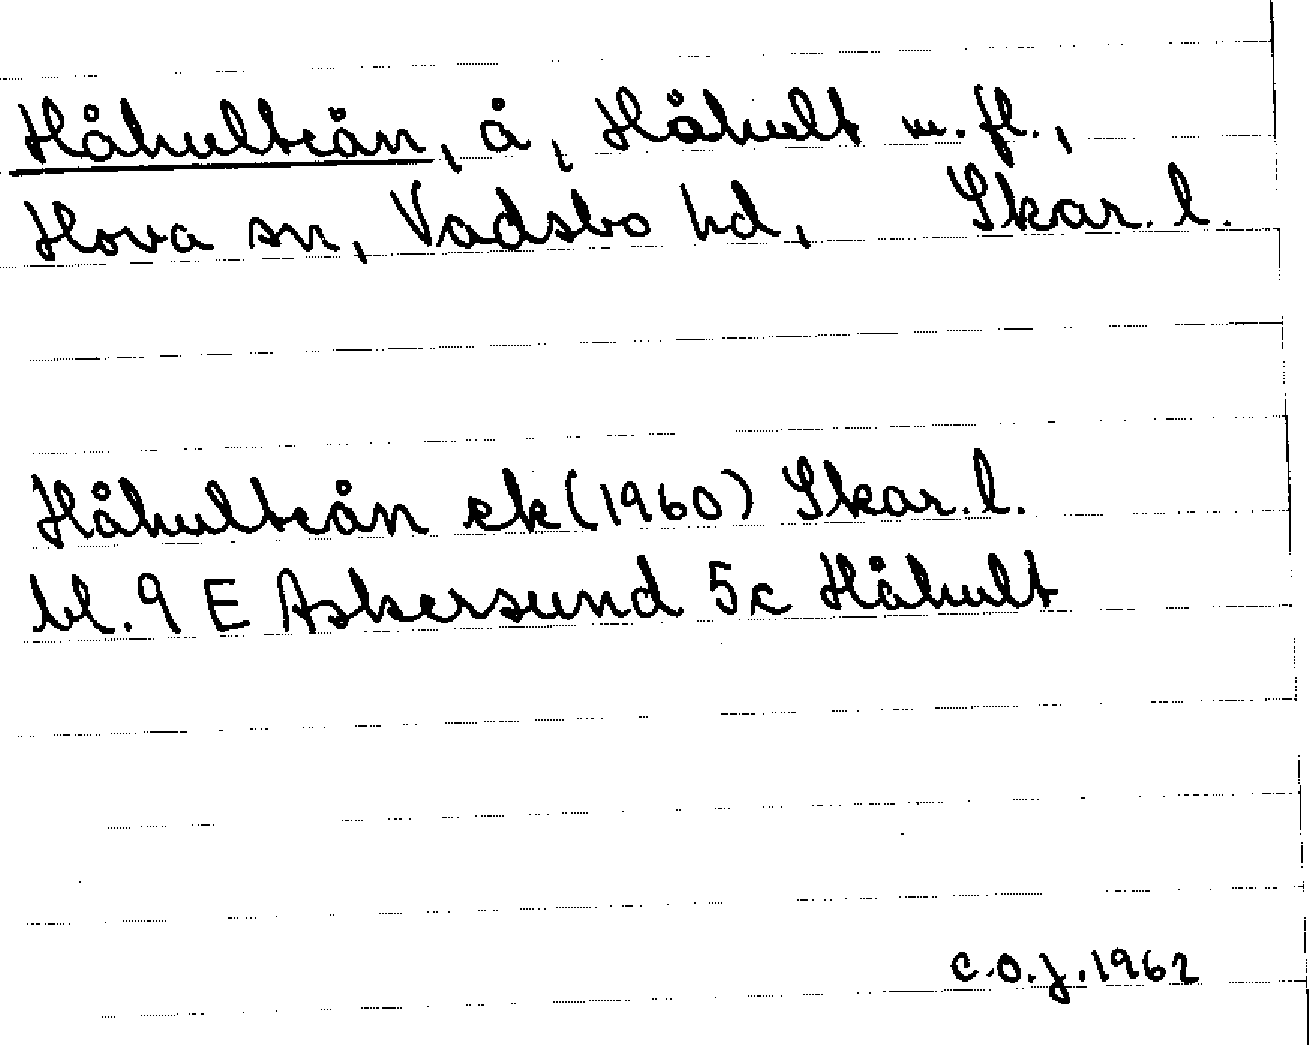 Håkultsån, å, Håkult m.fl.,
Hova sn, Vadsbo hd, Skar. l.
Håkultsån ek (1960) Skar. l.
bl. 9 E Askersund 5c Håkult
C.O.J. 1962